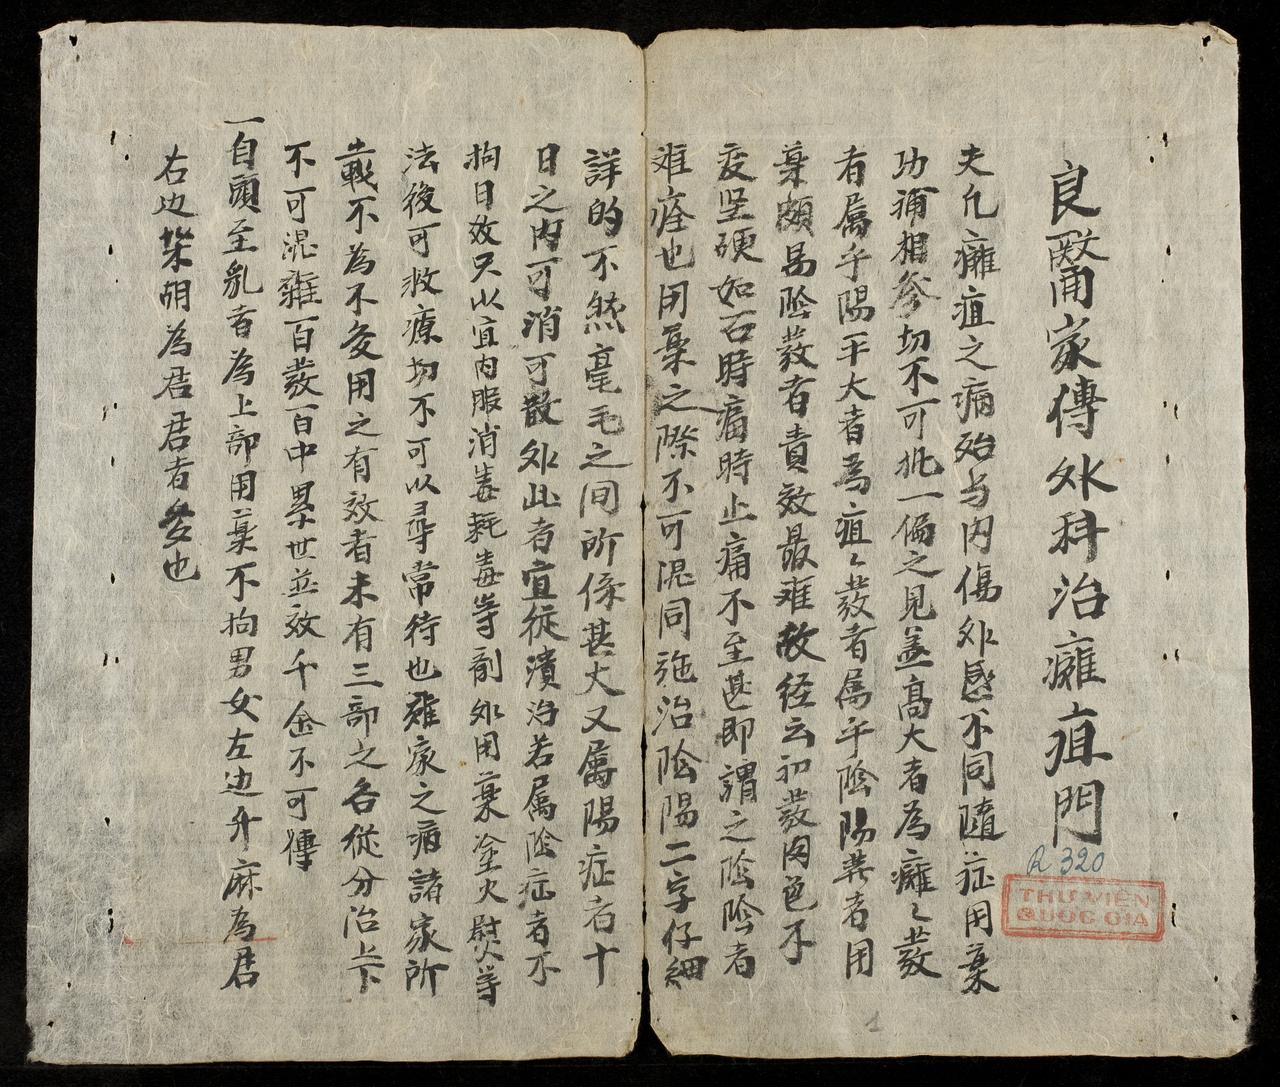 良醫家傳外科治癰疽門
夫凡癰疽之病殆与内傷外感不同隨症用藥
功補相參切不可執一偏之見盖高大者為癰〻發
者属乎陽平大者為疽〻發者属乎陰陽發者用
藥頗易陰發者責效最难故経云初發肉色不
变坚硬如石時痛時止痛不至甚即謂之陰陰者
难痊也用藥之際不可混同施治陰陽二字仔細
詳的不然毫毛之间所係甚大又属陽症者十
日之内可消可散外此者宜従潰治若属陰症者不
拘日效只以宜内服消毒托毒等劑外用藥塗火熨等
法後可救療切不可以尋常待也雖家之病諸家所
載不為不多用之有效者未有三部之各從分治上下
不可混雜百發百中累世並效千金不可傳
一自頭至乳者為上部用藥不拘男女左边升麻為君
右边柴胡為君君者多也
R 320
THƯ VIỆN
QUỐC GIA
1